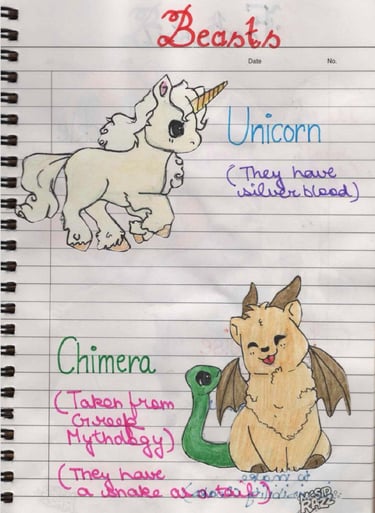 Beasts
Date No.
Unicorn
(They have
silver blood)
Chimera
(Taken from
Greek
Mythology)
(They have
a snake as a tail)